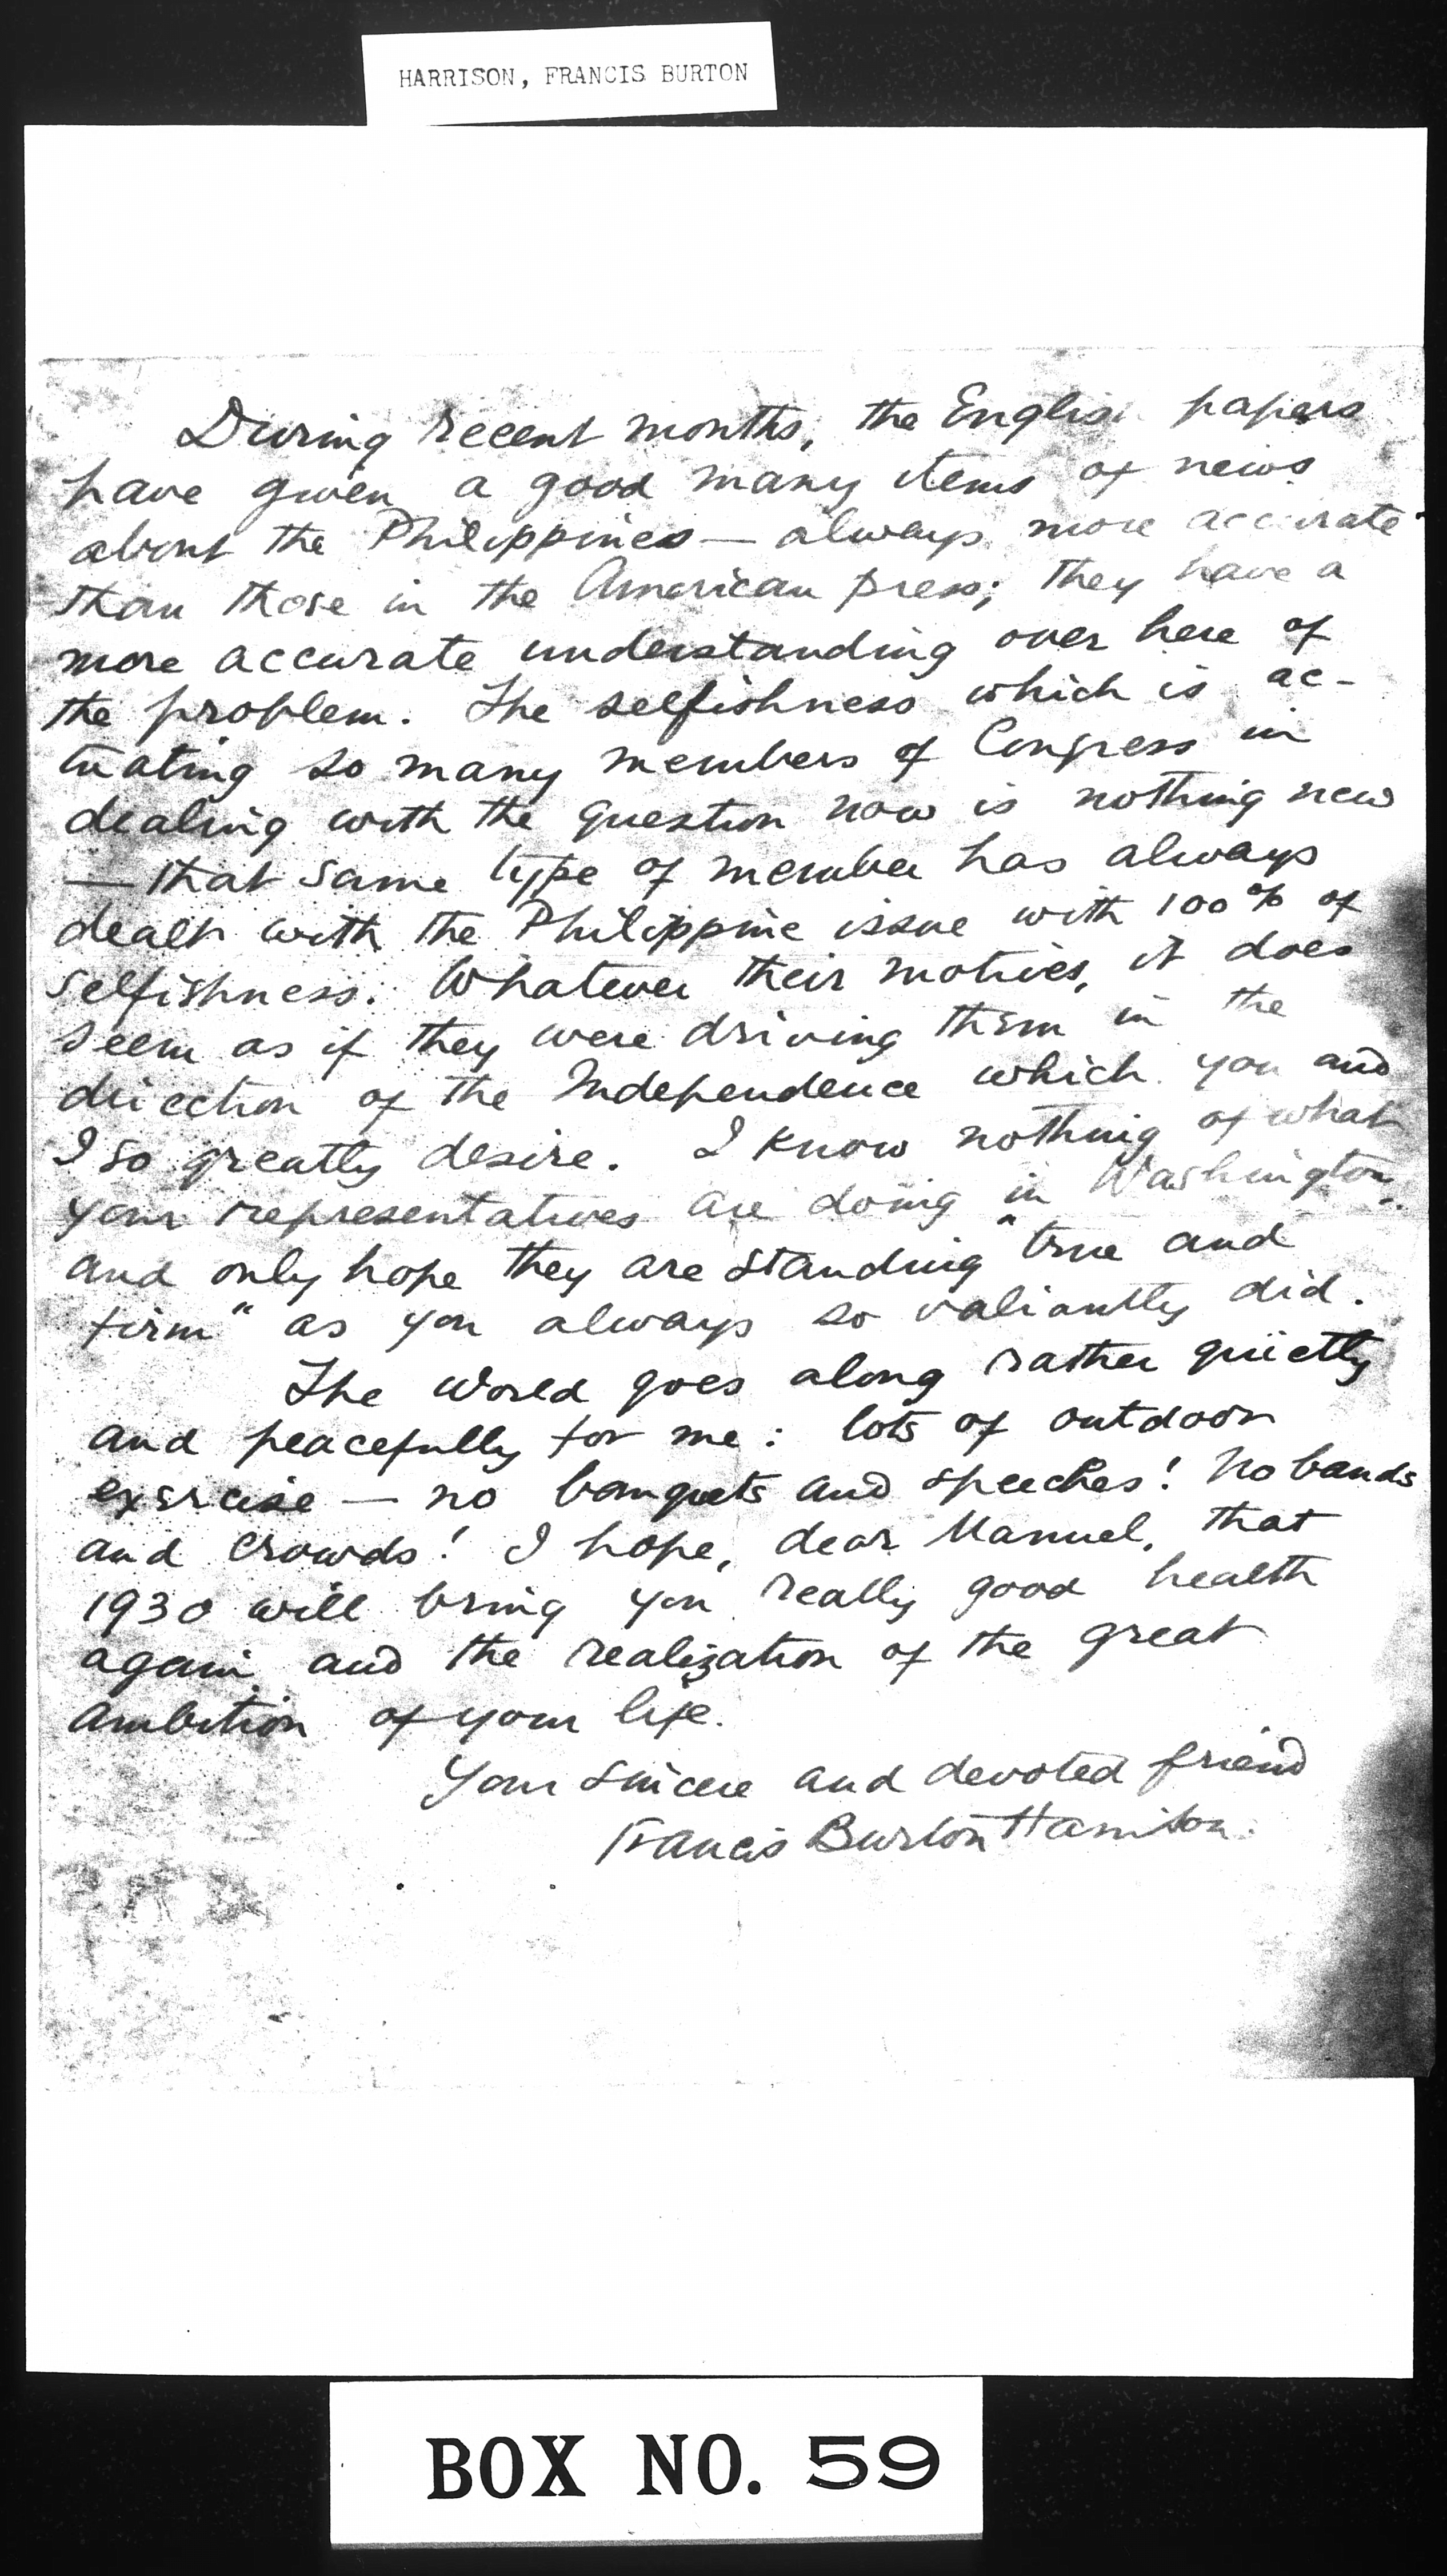 HARRISON, FRANCIS BURTON
During recent months, the English papers
have given a good many items of news
about the Philippines — always more accurate
than those in the American press; they have a
more accurate understanding over here of
the problem. The selfishness which is ac-
tuating so many members of Congress in
dealing with the question now is nothing new
— that same type of member has always
dealt with the Philippine issue with 100% of
selfishness. Whatever their motives, it does
seem as if they were driving them in the
direction of the Independence which you and
I so greatly desire. I know nothing of what
your representatives are doing in Washington,
and only hope they are standing "true and
firm" as you always so valiantly did.
The world goes along rather quietly
and peacefully for me: lots of outdoor
exercise — no banquets and speeches! No bands
and crowds! I hope, dear Manuel, that
1930 will bring you really good health
again and the realization of the great
ambition of your life.
Your sincere and devoted friend
Francis Burton Harrison.
BOX NO. 59